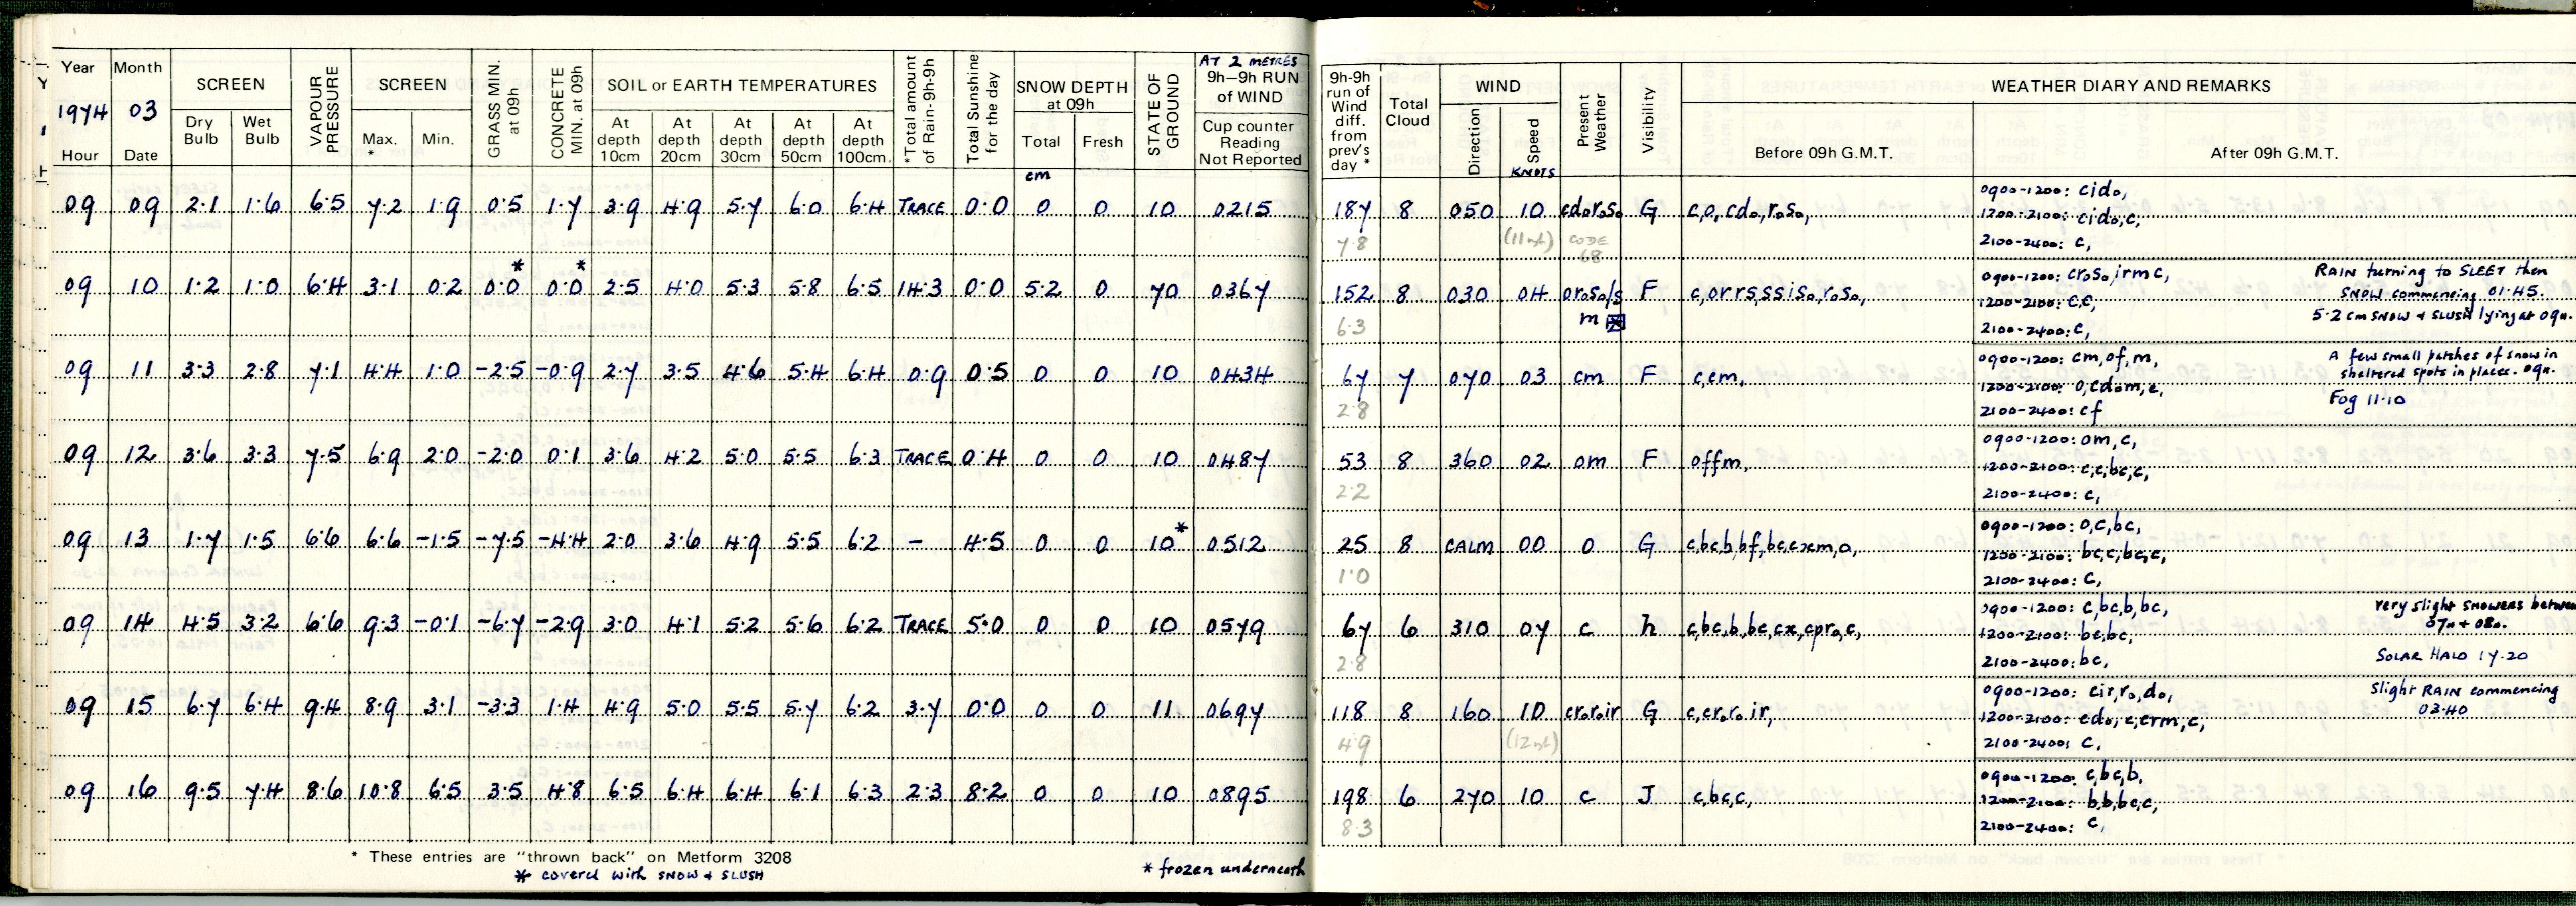 Year Month SCREEN VAPOUR PRESSURE SCREEN GRASS MIN. at 09h CONCRETE MIN. at 09h SOIL or EARTH TEMPERATURES *Total amount of Rain-9h-9h Total Sunshine for the day SNOW DEPTH at 09h STATE OF GROUND AT 2 METRES 9h–9h RUN of WIND
1974 03
Hour Date Dry Bulb Wet Bulb Max. * Min. At depth 10cm At depth 20cm At depth 30cm At depth 50cm At depth 100cm. Total Fresh Cup counter Reading Not Reported
cm
9h-9h run of Wind diff. from prev's day * Total Cloud WIND Direction Speed KNOTS Present Weather Visibility WEATHER DIARY AND REMARKS
Before 09h G.M.T. After 09h G.M.T.
09 09 2.1 1.6 6.5 7.2 1.9 0.5 1.7 3.9 4.9 5.7 6.0 6.4 TRACE 0.0 0 0 10 0215
187 8 050 10 cdₒrₒsₒ G c,o,cdₒ,rₒsₒ,
7.8 CODE 68
0900-1200: cidₒ,
1200-2100: cidₒ,c,
2100-2400: c,
* *
09 10 1.2 1.0 6.4 3.1 0.2 0.0 0.0 2.5 4.0 5.3 5.8 6.5 14.3 0.0 5.2 0 70 0367
152 8 030 04 orₒsₒ/s m F c,orrs,ssisₒ,rₒsₒ,
6.3
0900-1200: crₒsₒ,irmc,
1200-2100: c,c,
2100-2400: c,
RAIN turning to SLEET then
SNOW commencing 01.45.
5.2 cm SNOW & SLUSH lying at 09h.
09 11 3.3 2.8 7.1 4.4 1.0 -2.5 -0.9 2.7 3.5 4.6 5.4 6.4 0.9 0.5 0 0 10 0434
67 7 070 03 cm F c,cm,
2.8
0900-1200: cm,of,m,
1200-2100: o,cdₒm,c,
2100-2400: cf
A few small patches of snow in
sheltered spots in places. 09h.
Fog 11.10
09 12 3.6 3.3 7.5 6.9 2.0 -2.0 0.1 3.6 4.2 5.0 5.5 6.3 TRACE 0.4 0 0 10 0487
53 8 360 02 om F offm,
2.2
0900-1200: om,c,
1200-2100: c,c,bc,c,
2100-2400: c,
09 13 1.7 1.5 6.6 6.6 -1.5 -7.5 -4.4 2.0 3.6 4.9 5.5 6.2 – 4.5 0 0 10* 0512
25 8 CALM 00 o G c,bc,b,bf,bc,cxm,o,
1.0
0900-1200: o,c,bc,
1200-2100: bc,c,bc,c,
2100-2400: c,
09 14 4.5 3.2 6.6 9.3 -0.1 -6.7 -2.9 3.0 4.1 5.2 5.6 6.2 TRACE 5.0 0 0 10 0579
67 6 310 07 c h c,bc,b,bc,cx,cprₒ,c,
2.8
0900-1200: c,bc,b,bc,
1200-2100: bc,bc,
2100-2400: bc,
very slight SHOWERS
07h + 08h.
SOLAR HALO 17.20
09 15 6.7 6.4 9.4 8.9 3.1 -3.3 1.4 4.9 5.0 5.5 5.7 6.2 3.7 0.0 0 0 11 0697
118 8 160 10 crₒrₒir G c,crₒrₒir,
4.9
0900-1200: cir,rₒ,dₒ,
1200-2100: cdₒ,c,crm,c,
2100-2400: c,
Slight RAIN commencing
03.40
09 16 9.5 7.4 8.6 10.8 6.5 3.5 4.8 6.5 6.4 6.4 6.1 6.3 2.3 8.2 0 0 10 0895
198 6 270 10 c J c,bc,c,
8.3
0900-1200: c,bc,b,
1200-2100: b,b,bc,c,
2100-2400: c,
* These entries are "thrown back" on Metform 3208
* covered with SNOW & SLUSH
* frozen underneath